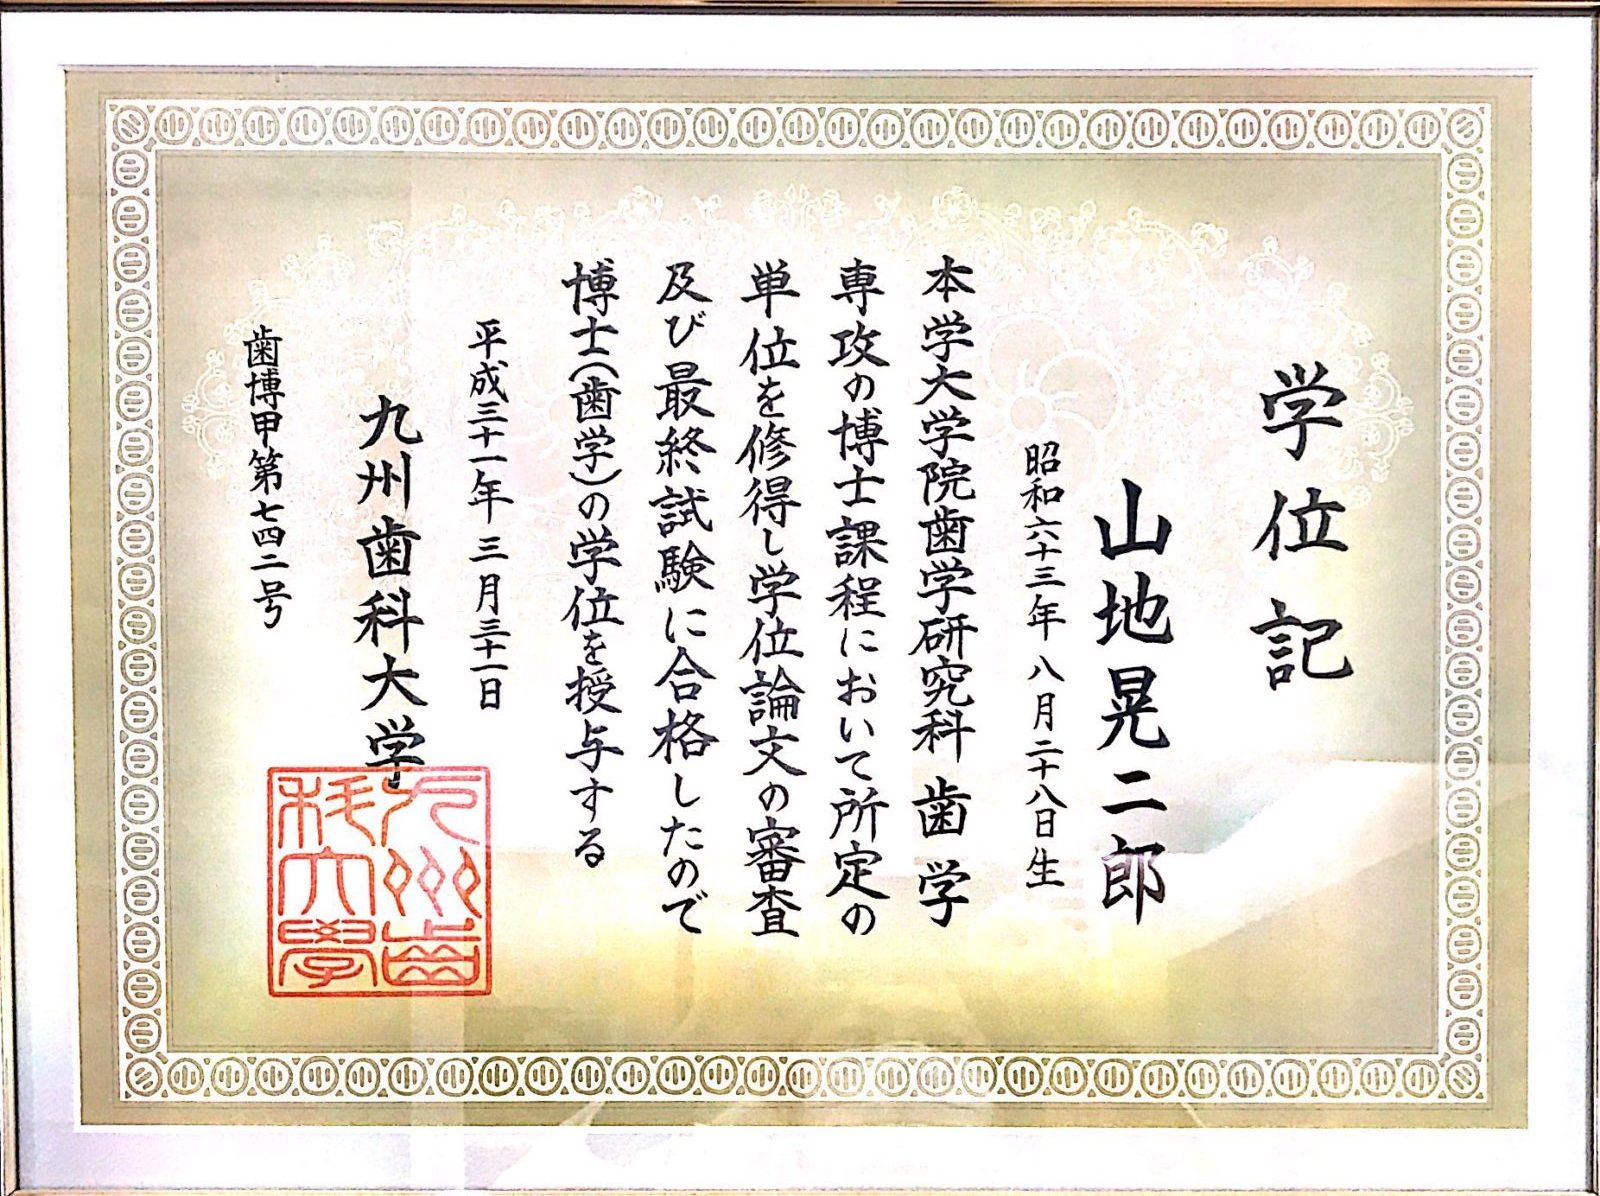 学位記
山地晃二郎
昭和六十三年八月二十八日生
本学大学院歯学研究科歯学
専攻の博士課程において所定の
単位を修得し学位論文の審査
及び最終試験に合格したので
博士(歯学)の学位を授与する
平成三十一年三月三十一日
九州歯科大学
歯博甲第七四二号
九州歯
科大學